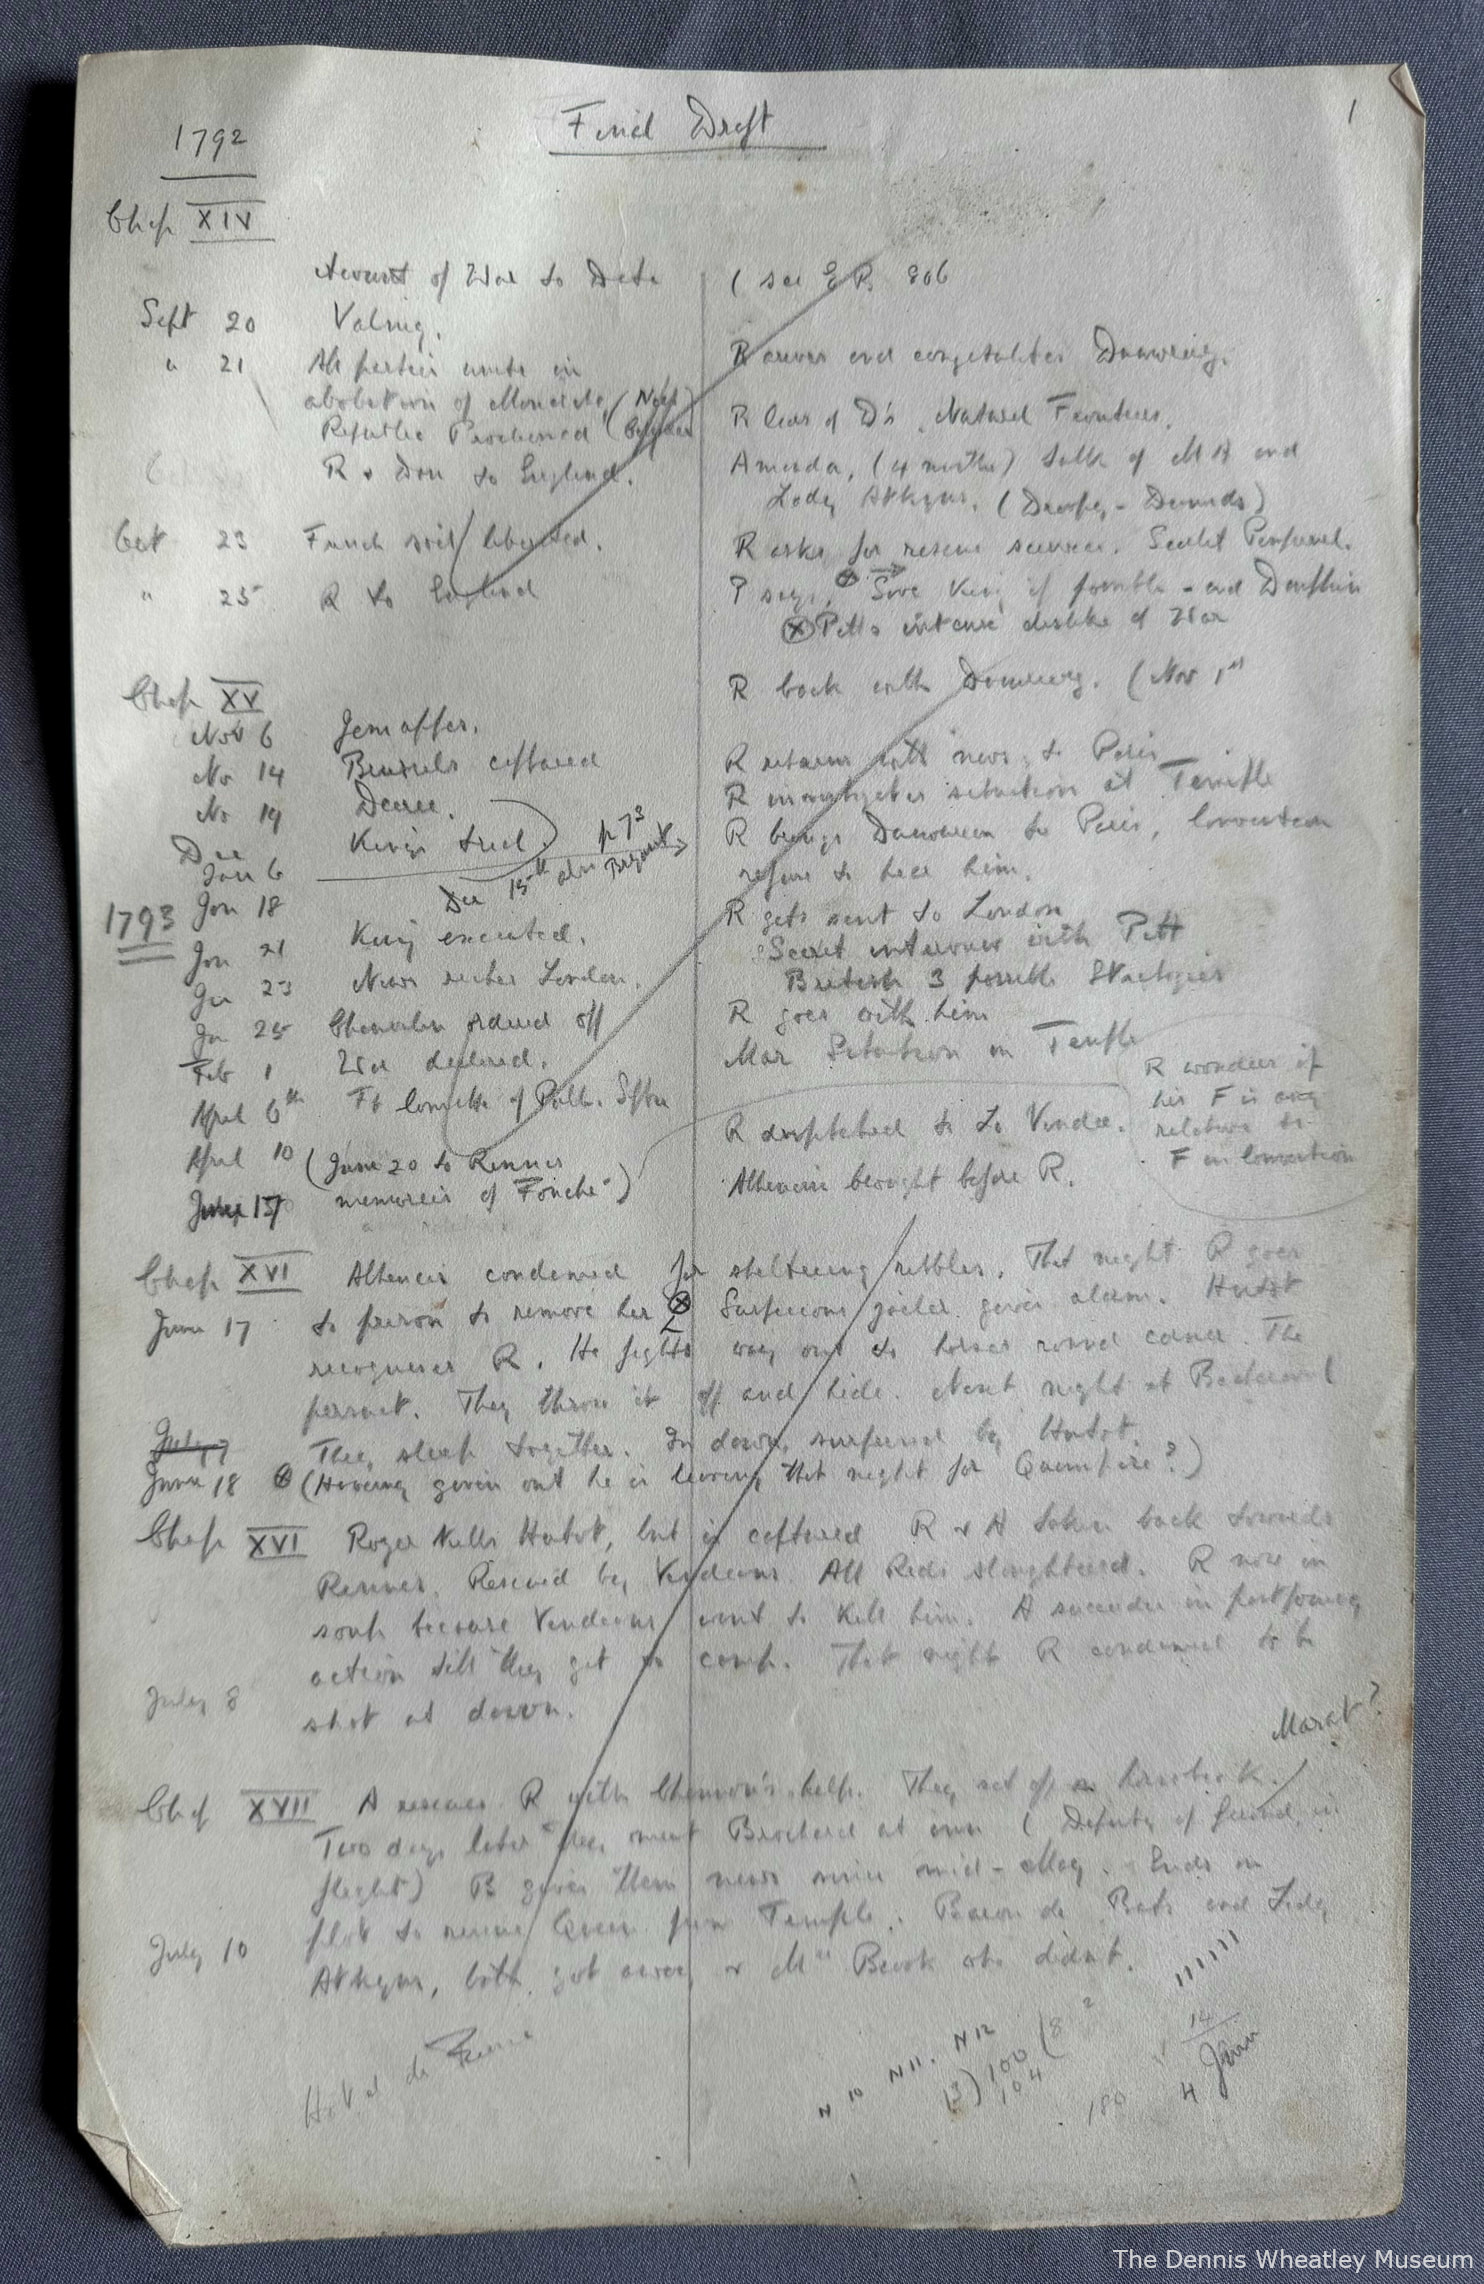 1792
Final Draft
1
Chap XIV
Account of War to Date
( see E.R. 806
Sept 20 Valmy.
" 21 All parties unite in
abolition of Monarchy (Next)
Republic Proclaimed
R arrives and congratulates Dumouriez.
R lears of D's Natural Frontiers.
R & Dan to England.
Amanda, (4 months) talk of MA and
Lady Atkyns. (Dropsy - Dunnds)
Oct 23 French soil liberated.
R asks for rescue service. Scarlet Pimpernel.
" 25 R to England
P says, ⊗ → Save King if possible - and Dauphin
⊗ Pitts intense dislike of War
Chap XV
R back with Dumouriez. (Nov 1st
Nov 6 Jemappes.
No 14 Brussels captured
R returns with news to Paris
No 19 Decree.
R investigates situation at Temple
Dec King's trial.
R brings Dumouriez to Paris, Convention
Jan 6
refuse to hear him.
Dec 15th also p 73 Bryant
1793
Jan 18
R gets sent to London
Jan 21 King executed.
Secret interview with Pitt
Ja 23 News reaches London.
British 3 possible Strategies
Ja 25 Chauvelin ordered off
R goes with him
Feb 1 War declared.
Mar Situation in Temple
April 6th Ft Comitte of Pub. Sftee
R wonders if
his F is any
relative to
F in Convention
April 10
R despatched to La Vendee.
(June 20 to Rennes
memories of Fouche)
July 17
Athenais brought before R.
Chap XVI Athenais condemned for sheltering rebbles. That night R goes
June 17 to prison to remove her ⊗ Suspicious goaler gives alarm. Hutot
recognises R. He fights way out to horses round corner. The
persuit. They throw it off and hide. Next night at Becherel
July 7 They sleep together. In dawn, surprised by Hutot.
June 18 ⊗ (Having given out he is leaving that night for Quimpire?)
Chap XVI Roger kills Hutot, but is captured R & A taken back towards
Rennes. Rescued by Vendeans. All Reds slaughtered. R now in
soup because Vendeans want to kill him. A succeeds in postponing
action till they get to camp. That night R condemed to be
July 8
shot at dawn.
Marat?
Chap XVII A rescues R with Chenou's help. They set off on horseback.
Two days later they meet Brochard at inn ( Deputy of Girond, in
flight) B gives them news since mid-May. Ends on
plot to rescue Queen from Temple. Baron de Batz and Lady
July 10
Atkyns, both got away, & Mrs Brook who didnt.
Hotel de France
N 10 N 11. N 12
13) 100 (8
104
180
14
4 Jan